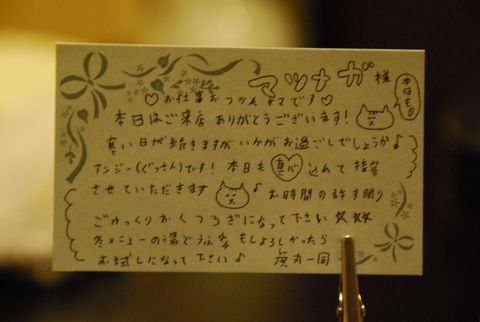 マツナガ様
本日も
♡お仕事おつかれさまです♡
本日はご来店ありがとうございます!
寒い日が続きますがいかがお過ごしでしょうか♪
アンジー(ぐっさん)です! 本日も 真心 込めて 接客
させていただきます ♪ お時間の許す限り
ごゆっくりおくつろぎになって下さい
冬メニューの湯どうふ もしよろしかったら
お試しになって下さい♪ 丸一同